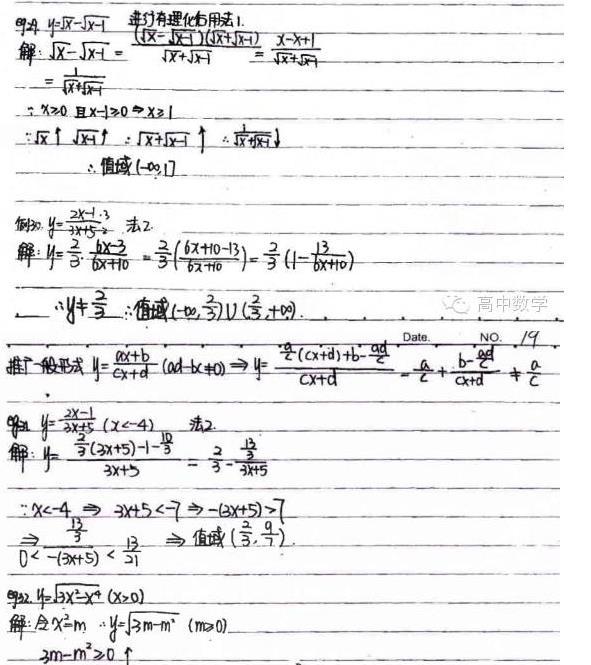 例29. y=√x-√x-1 进行有理化后用法1.
解: √x-√x-1 = (√x-√x-1)(√x+√x-1)/√x+√x-1 = x-x+1/√x+√x-1
= 1/√x+√x-1
∵ x≥0 且 x-1≥0 ⇒ x≥1
∵ √x↑ √x-1↑ ∴ √x+√x-1 ↑ ∴ 1/√x+√x-1↓
∴ 值域 (-∞,1]
例30. y=2x-1·3/3x+5·2 法2.
解: y=2/3·6x-3/6x+10 = 2/3(6x+10-13/6x+10) = 2/3(1-13/6x+10)
∴ y≠2/3 ∴ 值域(-∞,2/3)∪(2/3,+∞).
高中数学
Date. NO. 19
推广一般形式 y=ax+b/cx+d (ad-bc≠0) ⇒ y= a/c(cx+d)+b-ad/c / cx+d = a/c + b-ad/c / cx+d ≠ a/c
例31. y=2x-1/3x+5 (x<-4) 法2.
解: y= 2/3(3x+5)-1-10/3 / 3x+5 = 2/3 - 13/3 / 3x+5
∵ x<-4 ⇒ 3x+5<-7 ⇒ -(3x+5)>7
⇒ 0< 13/3 / -(3x+5) < 13/21 ⇒ 值域 (2/3, 9/7).
例32. y=√3x²-x⁴ (x>0)
解: 令x²=m ∴ y=√3m-m² (m≥0)
3m-m²≥0 ↑